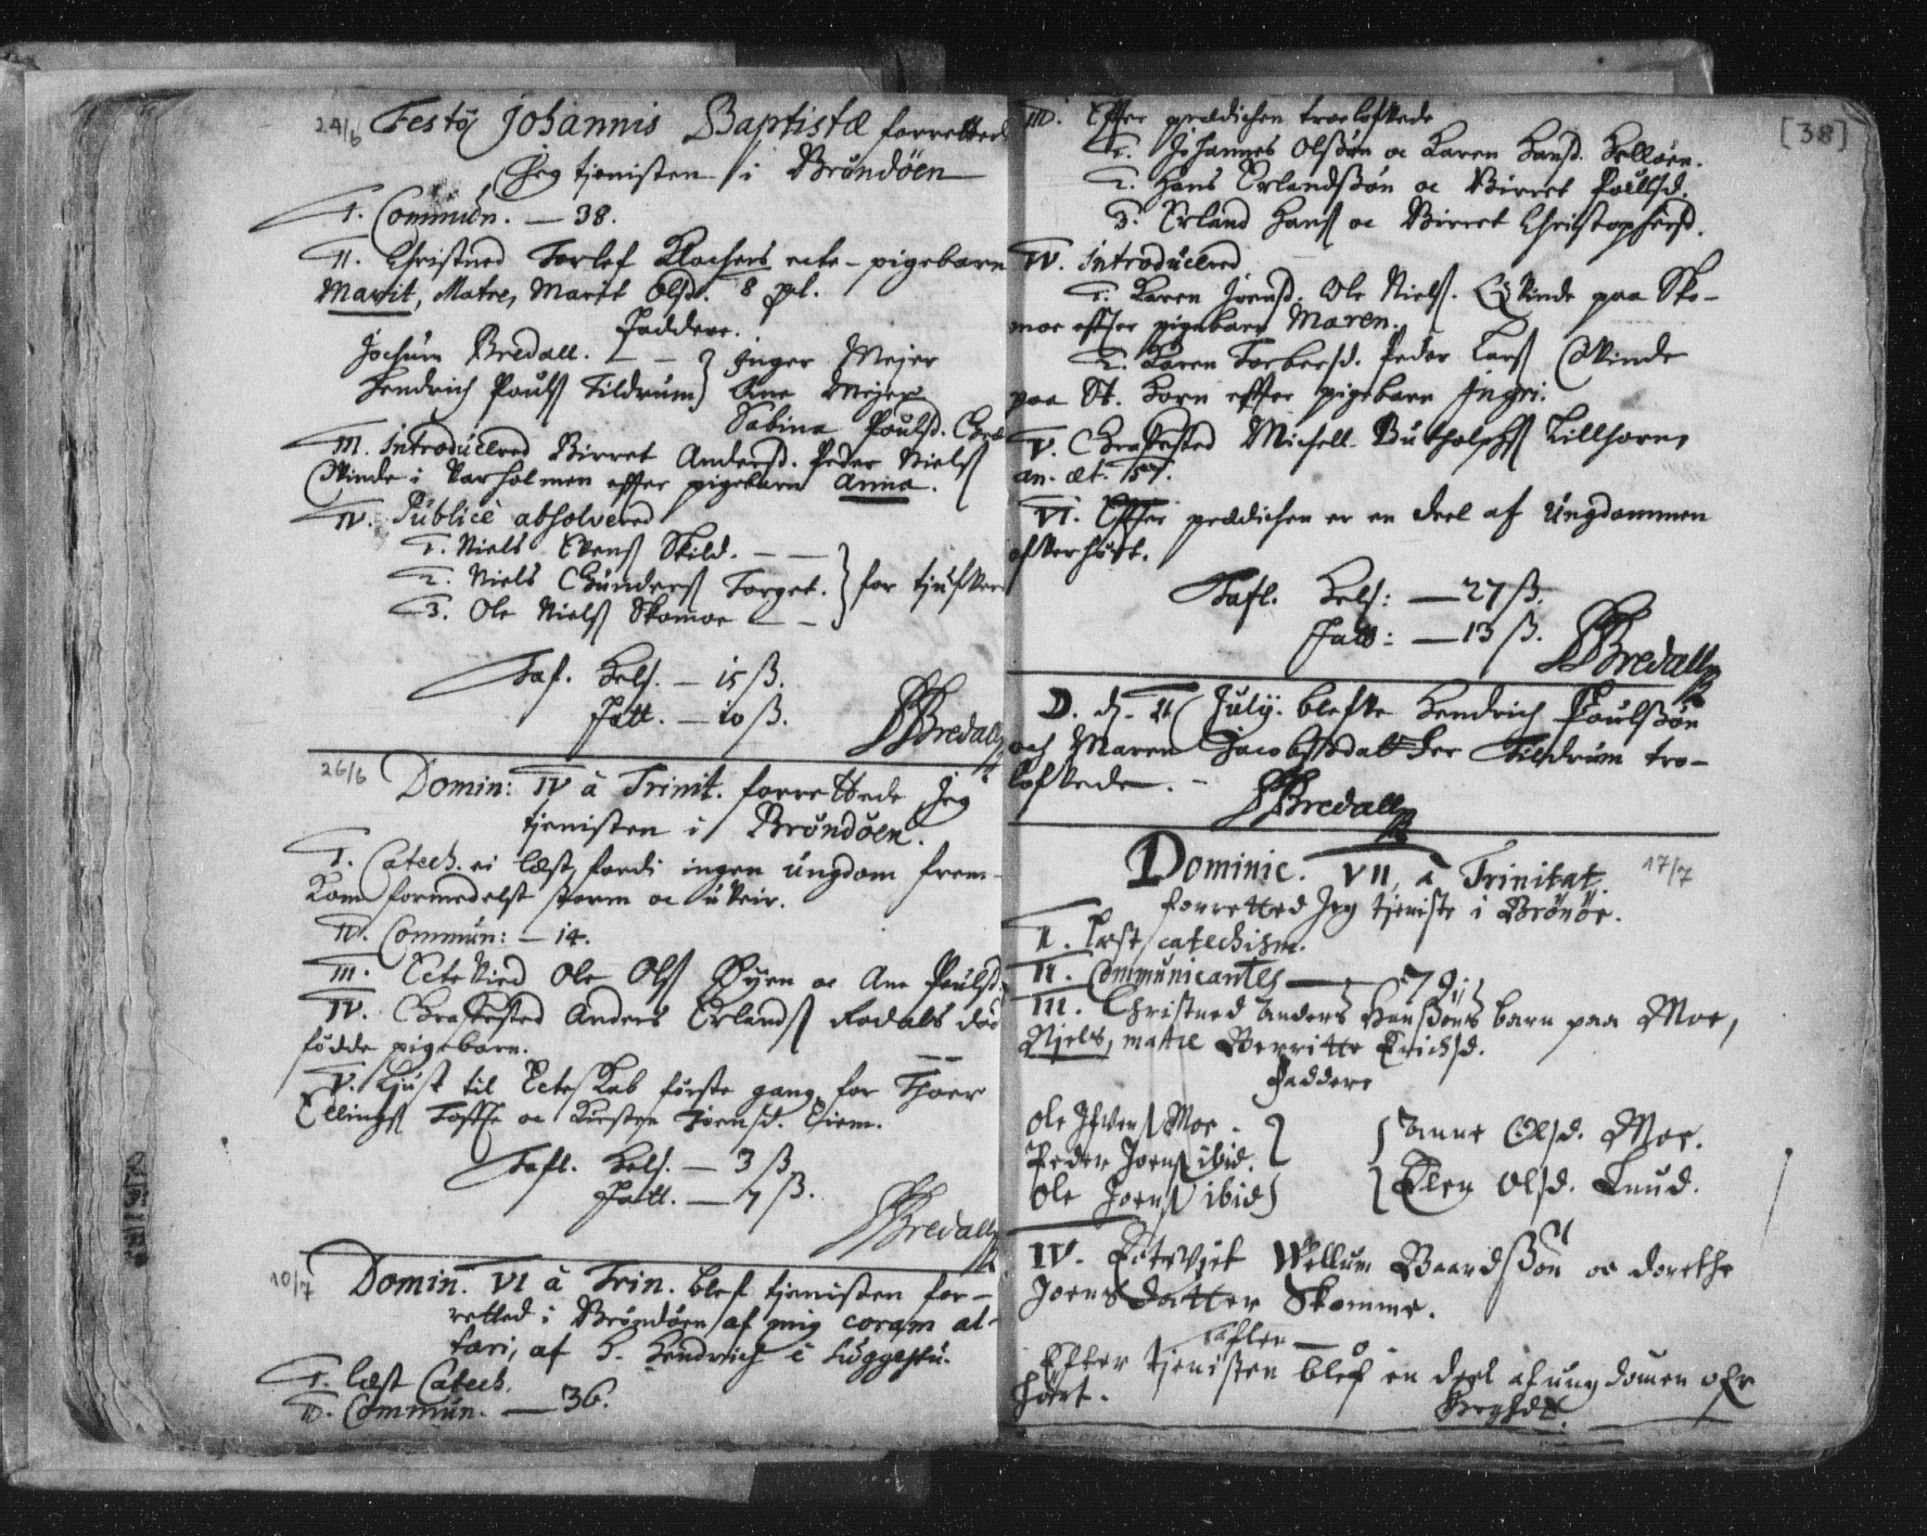 24/6 Festo Johannis Baptistæ forrettede
Jeg tienisten i Bröndöen
I. Commun. — 38.
II. Christned Torlef Klochers ecte-pigebarn
Marit, Matre, Marit Olsd. 8
Faddere.
Jochum Bredall. — — Inger Mejer
Hendrich Pouls Tildrum Ane Mejer
Sabina Poulsd.
III. Introducered Birret Andersd. Peder Niels
Qvinde i Varholmen effter pigebarn Anna.
IV. Publicè absolvered
1. Niels Evens Skild. — —
2. Niels Gunders Torget. for tiufveri
3. Ole Niels Skomoe — —
Taf. Hels. — 15 ß.
Fatt. — 10 ß.
Bredall
26/6 Domin: IV à Trinit. forrettede Jeg
tienisten i Bröndöen.
I. Catech. ei læst, fordi ingen ungdom frem-
kom formedelst storm oc uveir.
II. Commun: — 14.
III. Ectevied Ole Ols Öyen oc Ane Poulsd.
IV. Grafested Anders Erlands Rodals död
födde pigebarn.
V. Liust til Ecteskab förste gang for Thoer
Ellings Tofte oc Kirsten Joensd. Tiem.
Tafl. Hels. — 3 ß
Fatt. — 7 ß.
Bredall
10/7 Domin. VI à Trin. blef tienisten for-
retted i Bröndöen af mig coram al-
tari, af H. Hendrich è suggestu.
I. læst Catech.
II. Commun. — 36.
[38]
III. Effter prædichen trolofvede
1. Johannes Olssön oc Karen Hansd. Helløen.
2. Hans Erlandssön oc Birret Poulsd.
3. Erland Hans oc Birret Christophersd.
IV. Introducered
1. Karen Joensd. Ole Niels. Qvinde paa Sko-
moe effter pigebarn Maren.
2. Karen Torbersd. Peder Lars Qvinde
paa St. Horn effter pigebarn Ingri.
V. Grafested Michell Butholphs Lillhorn,
an. æt. 57.
VI. Effter prædichen er en deel af Ungdommen
ofverhört.
Tafl. Hels: — 27 ß.
Fatt: — 13 ß.
Bredall
D. d. 26 July. blefve Hendrich Poulssön
och Maren Jacobsdatter Tildrum tro-
lofvede. —
Bredall
Dominic. VII, à Trinitat. 17/7
forretted Jeg tieniste i Brönöe.
I. Læst catechism.
II. Communicantes —
III. Christned Anders Hanssöns barn paa Moe,
Njels, matre Berritte Erichsd.
Faddere
Ole Ifvers Moe. Anne Olsd. Moe.
Peder Joens ibid. Elen Olsd. Lund.
Ole Joens ibid
IV. Ectevjet Willum Baardssön oc dorethe
Joensdatter Skomme.
taflen — 0
Efter tjenisten blef en deel af ungdomen ofr
hört.